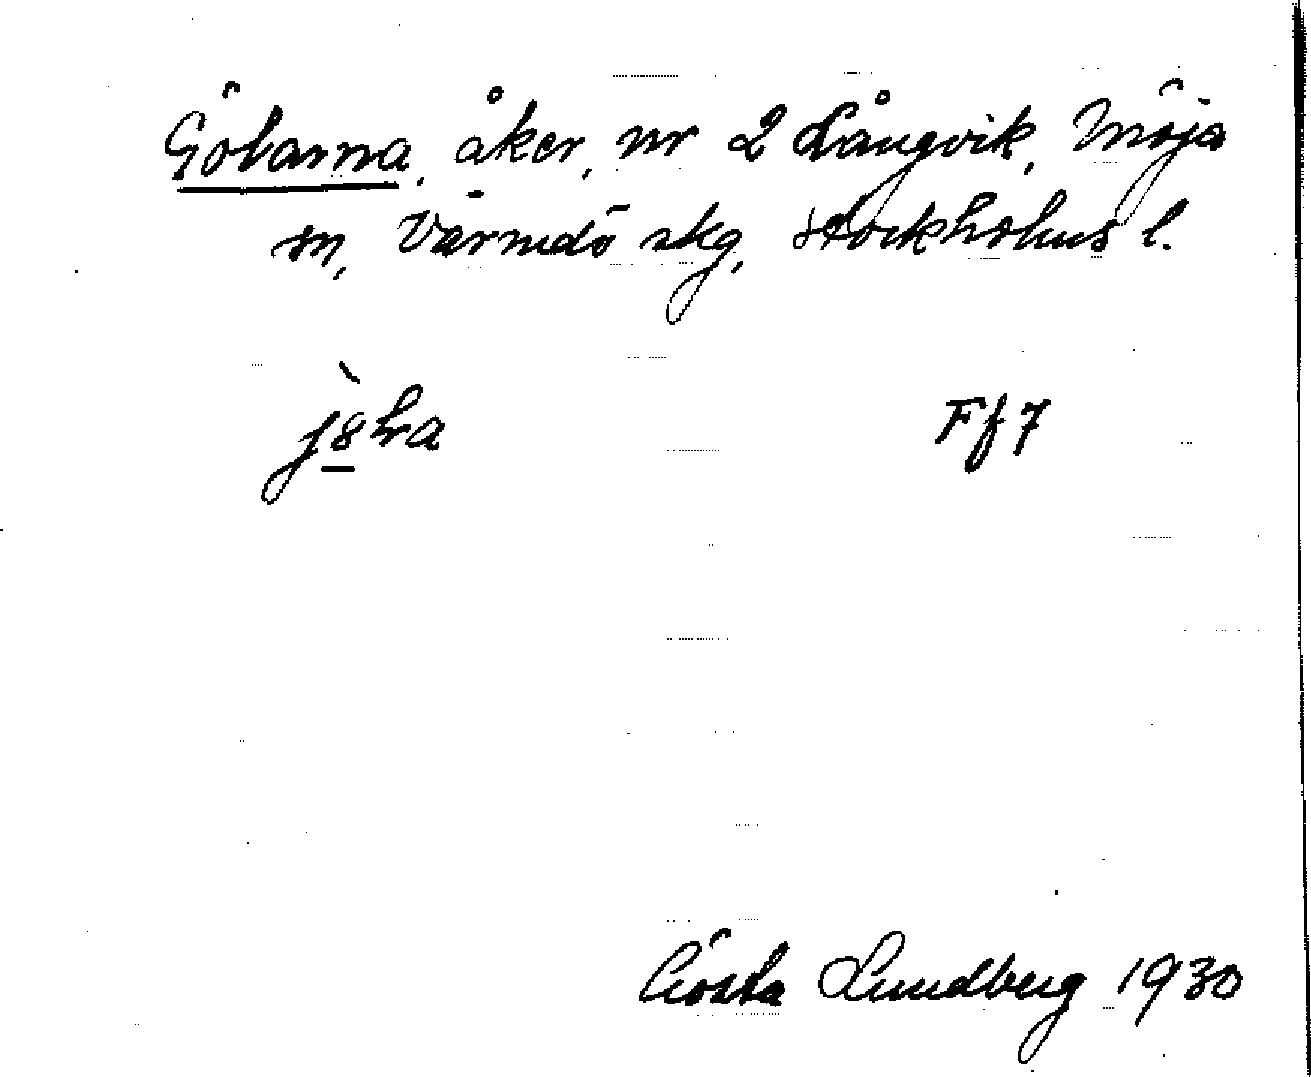 Götarna, åker, nr 2 Långvik, Möja
sn, Värmdö skg, Stockholms l.
Ff7
Gösta Lundberg 1930